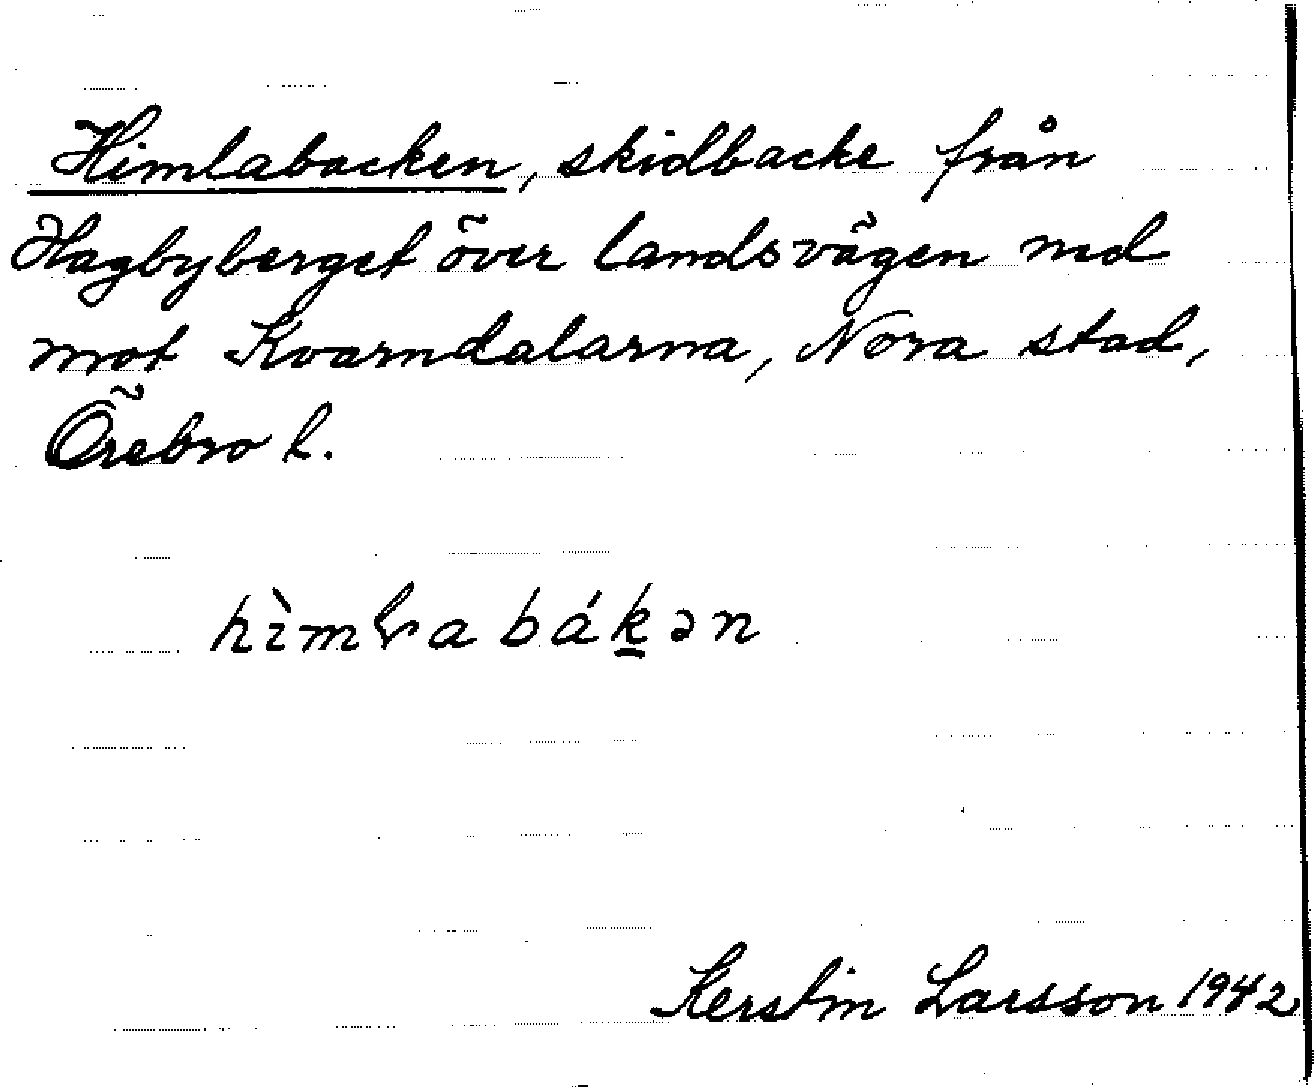 Himlabacken, skidbacke från
Hagbyberget över landsvägen ned
mot Kvarndalarna, Nora stad,
Örebro l.
hìmɽabák̲ən
Kerstin Larsson 1942